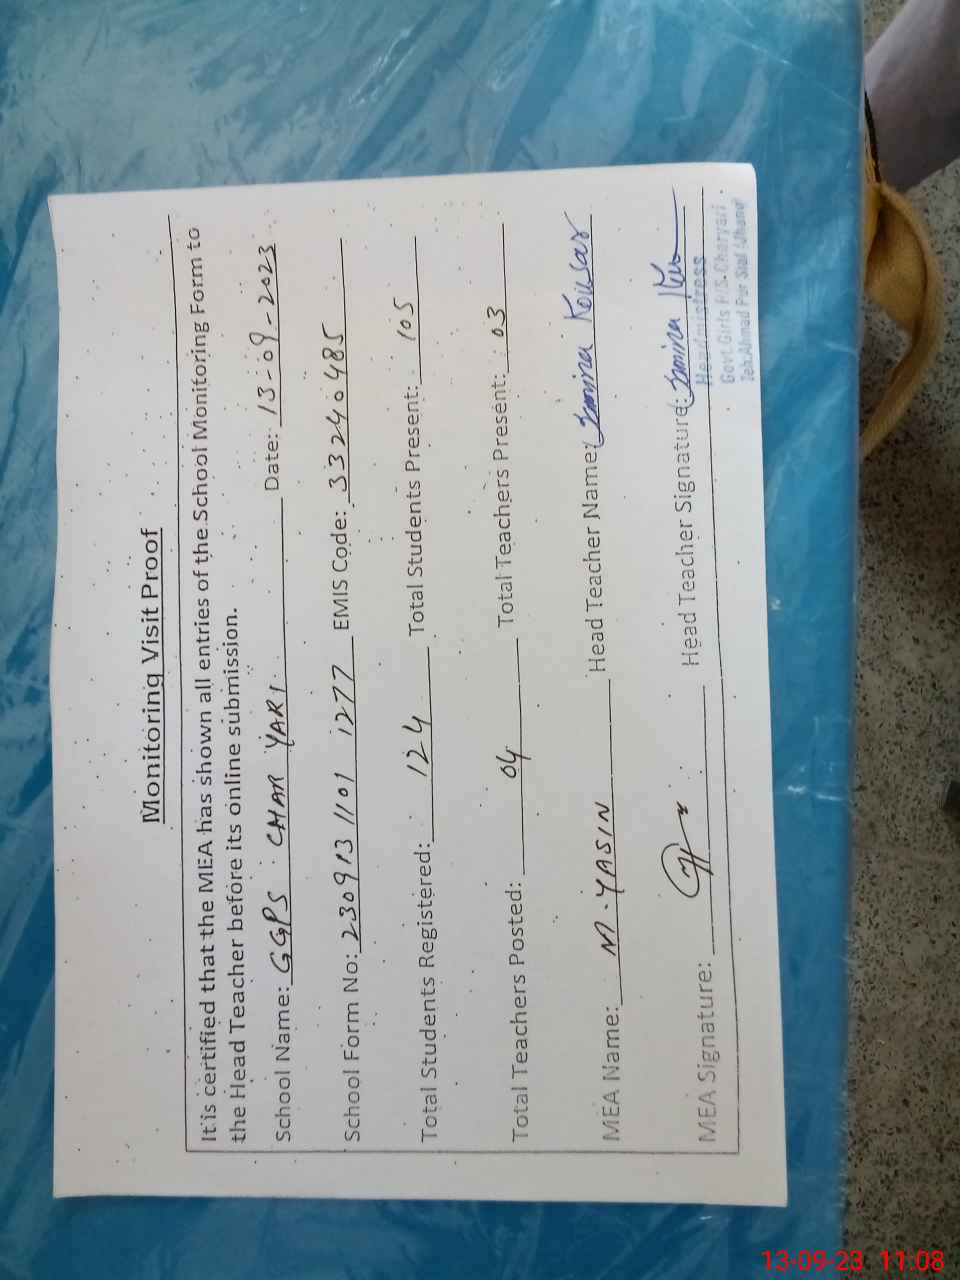 Monitoring Visit Proof
It is certified that the MEA has shown all entries of the School Monitoring Form to
the Head Teacher before its online submission.
School Name: GGPS CHAR YARI Date: 13-09-2023
School Form No: 230913 1101 1277 EMIS Code: 33240485
Total Students Registered: 124 Total Students Present: 105
Total Teachers Posted: 04 Total Teachers Present: 03
MEA Name: M. YASIN Head Teacher Name: Kousar
MEA Signature: Head Teacher Signature:
Headmistress
Govt. Girls P/S. Charyari
Teh: Ahmad Pur Sial (Jhang)
13-09-23 11:08